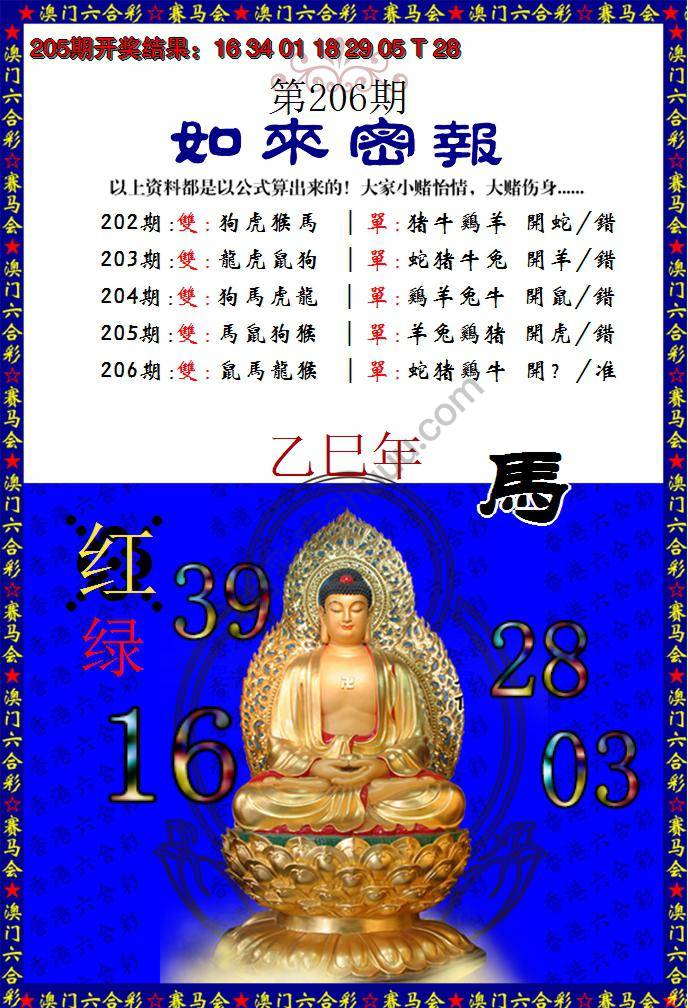 ★澳门六合彩☆赛马会★澳门六合彩☆赛马会★澳门六合彩☆赛马会★澳门六合彩☆赛马会★
205期开奖结果：16 34 01 18 29 05 T 28
第206期
如來密報
以上资料都是以公式算出来的！大家小赌怡情，大赌伤身......
202期:雙:狗虎猴馬 ｜單:猪牛鷄羊 開蛇/錯
203期:雙:龍虎鼠狗 ｜單:蛇猪牛兔 開羊/錯
204期:雙:狗馬虎龍 ｜單:鷄羊兔牛 開鼠/錯
205期:雙:馬鼠狗猴 ｜單:羊兔鷄猪 開虎/錯
206期:雙:鼠馬龍猴 ｜單:蛇猪鷄牛 開？/准
乙巳年
馬
红
绿
39
28
16
03
香港六合彩